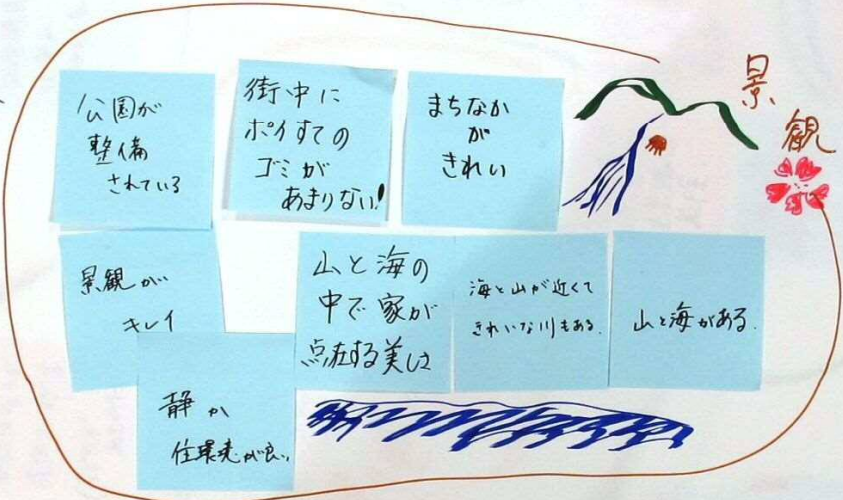 景
観
公園が
整備
されている
街中に
ポイすての
ゴミが
あまりない!
まちなか
が
きれい
景観が
キレイ
山と海の
中で家が
点在する美しさ
海と山が近くて
きれいな川もある.
山と海がある.
静か
住環境が良い